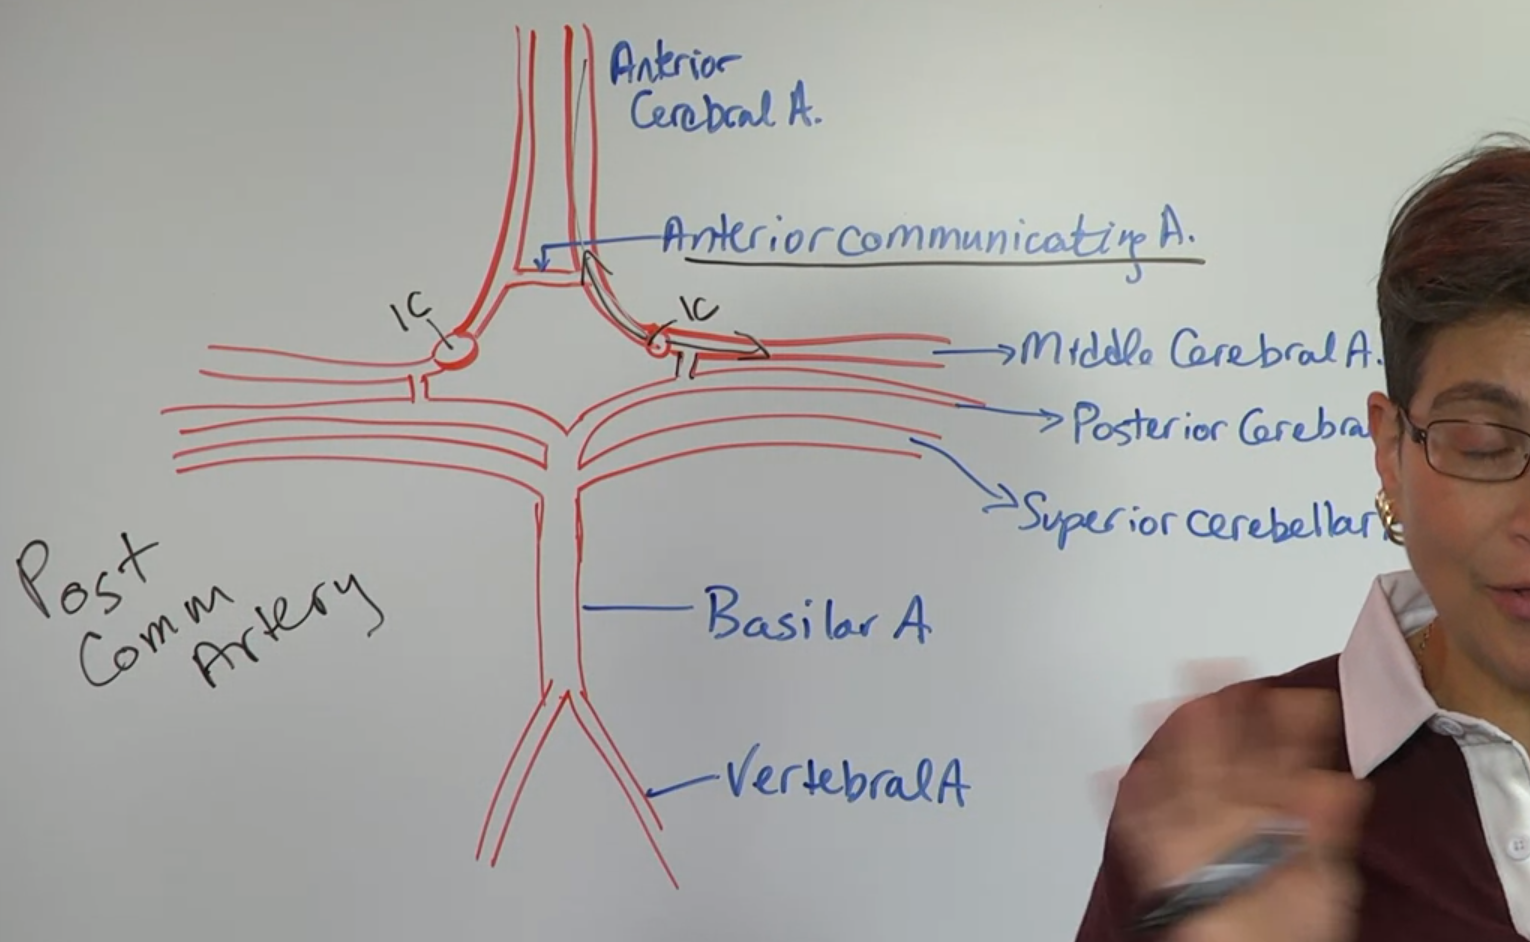 Anterior
Cerebral A.
Anterior communicating A.
IC
IC
Middle Cerebral A.
Posterior Cerebra
Superior cerebellar
Post
Comm
Artery
Basilar A
Vertebral A